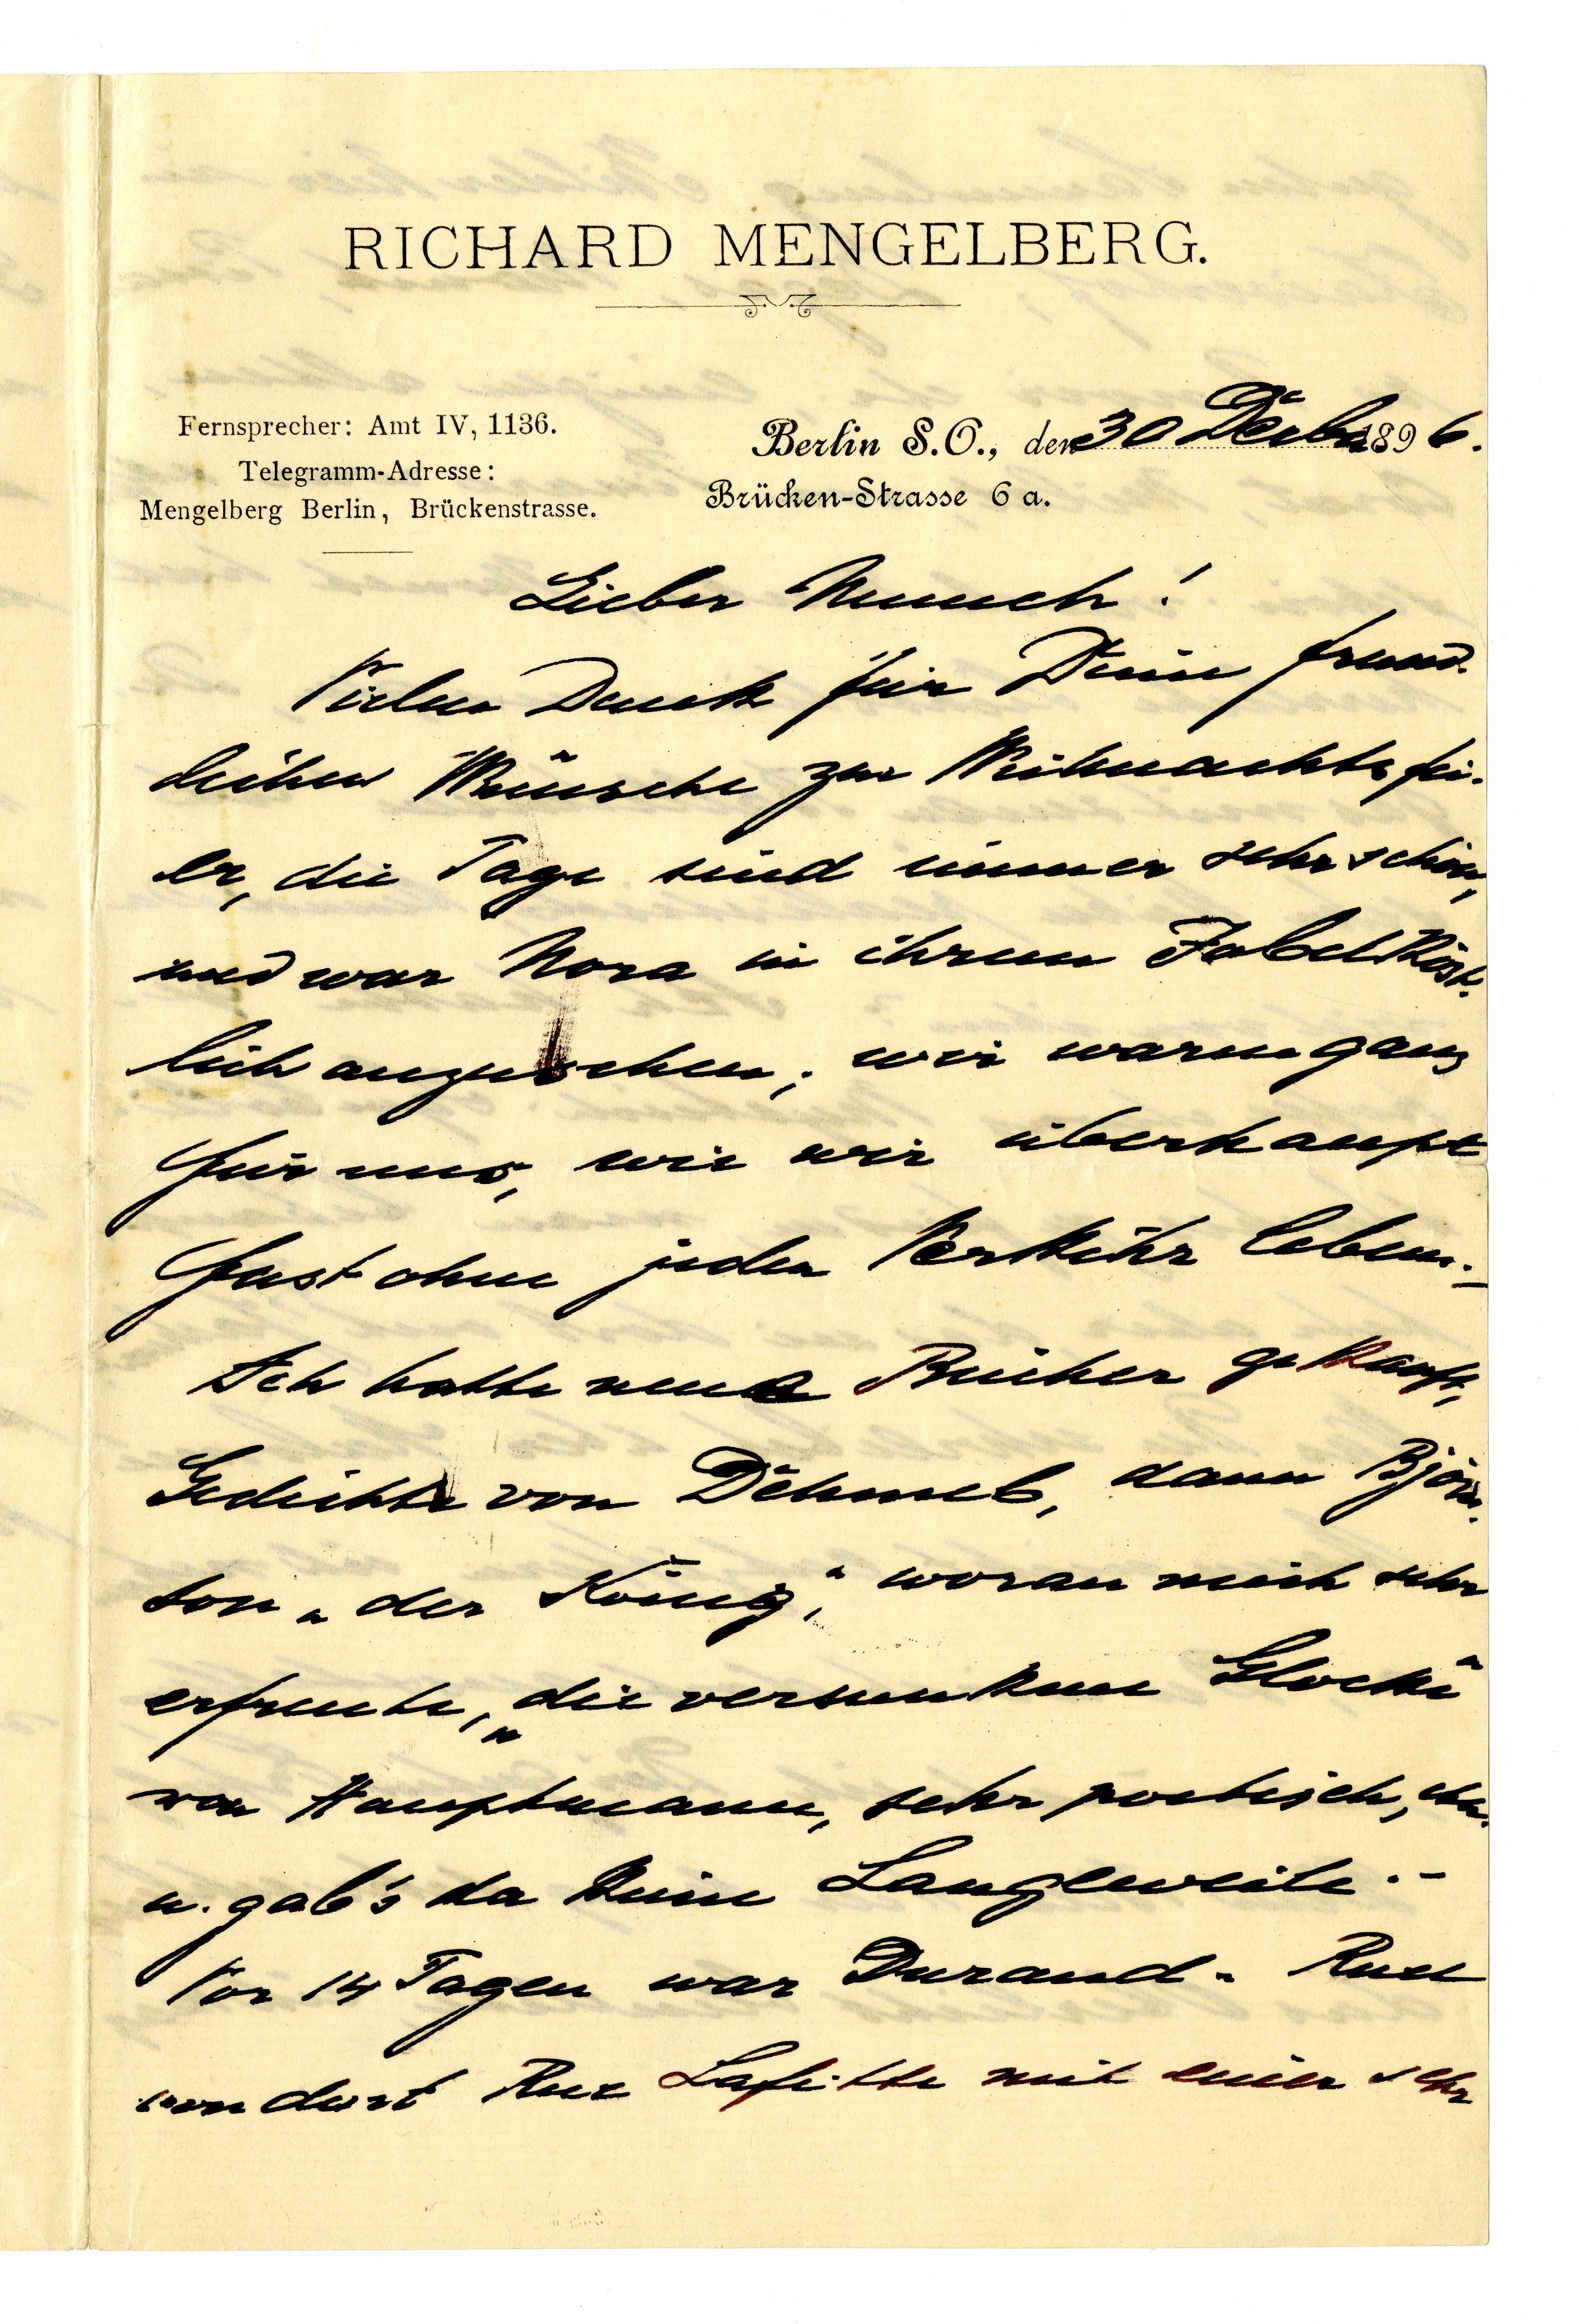 RICHARD MENGELBERG.
Fernsprecher: Amt IV, 1136.
Telegramm-Adresse:
Mengelberg Berlin, Brückenstrasse.
Berlin S.O., den 30 Dezbr 1896.
Brücken-Strasse 6 a.
Lieber Munch!
Vielen Dank für Deine freund-
lichen Wünsche zur Weihnachtsfei-
er, die Tage sind immer sehr schön,
und war Nora in ihrem Jubel köst-
lich anzusehen; wir waren ganz
für uns, wie wir überhaupt
fast ohne jeden Verkehr leben. –
Ich hatte neue Bücher gekauft,
Gedichte von Dehmel, dann Björn-
son „der König“, woran mich sehr
erfreute, „die versunkene Glocke“
von Hauptmann, sehr poetisch,
u. gab's da keine Langleweile. –
Vor 14 Tagen war Durand-Ruel
von dort Rue Lafitte mit einer sehr